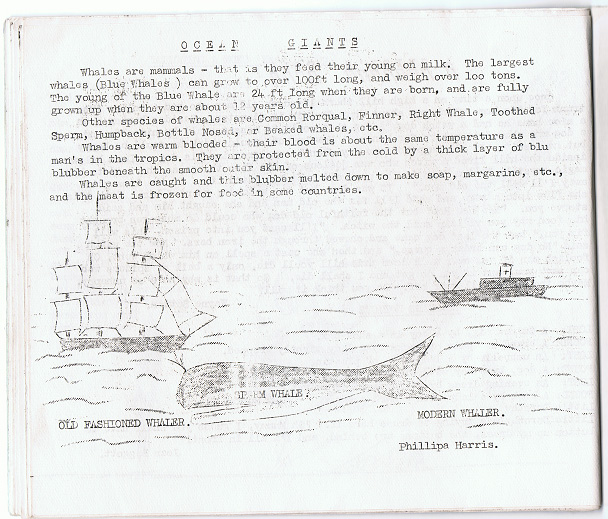 OCEAN GIANTS
Whales are mammals - that is they feed their young on milk. The largest
whales (Blue Whales ) can grow to over 100ft long, and weigh over loo tons.
The young of the Blue Whale are 24 ft long when they are born, and are fully
grown up when they are about 12 years old.
Other species of whales are Common Rorqual, Finner, Right Whale, Toothed
Sperm, Humpback, Bottle Nosed, or Beaked whales, etc.
Whales are warm blooded - their blood is about the same temperature as a
man's in the tropics. They are protected from the cold by a thick layer of blu
blubber beneath the smooth outer skin.
Whales are caught and this blubber melted down to make soap, margarine, etc.,
and the meat is frozen for food in some countries.
SPERM WHALE.
OLD FASHIONED WHALER.
MODERN WHALER.
Phillipa Harris.